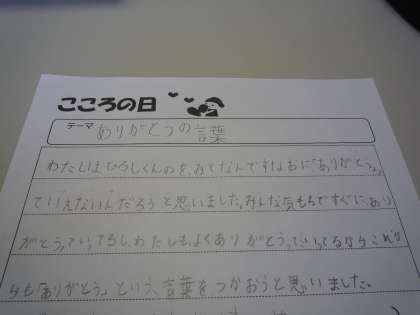 こころの日
テーマ ありがとうの言葉
わたしは、ひろしくんのを、みてなんですなおに「ありがとう。」
ていえないんだろうと思いました。みんな気もちですぐに、あり
がとう。ていってるし、わたしも、よくありがとう。って、いってるならこれか
らも「ありがとう。」という、言葉をつかおうと思いました。